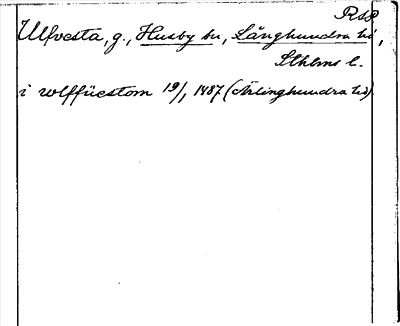 RAP
Ulfvesta, g., Husby sn, Långhundra hd,
Sthlms l.
i wlffüestom 19/1 1487 (Ärlinghundra hd)